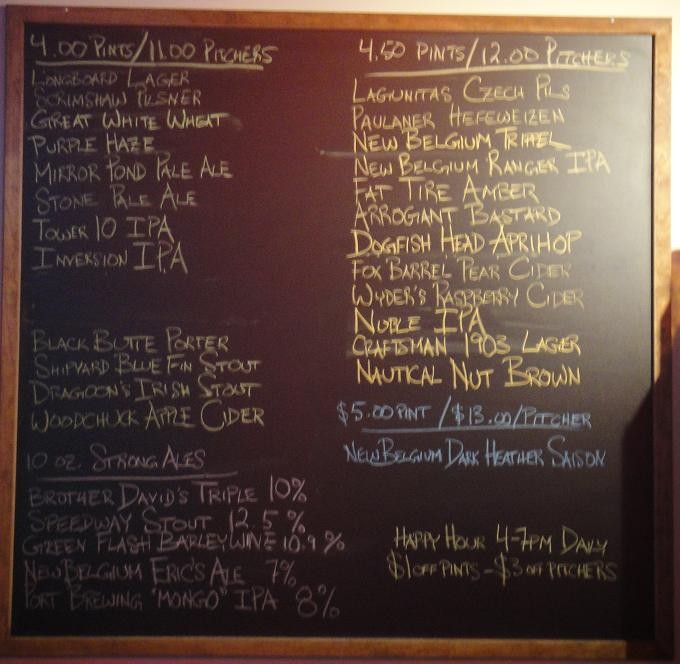 4.00 PINTS/11.00 PITCHERS
LONGBOARD LAGER
SCRIMSHAW PILSNER
GREAT WHITE WHEAT
PURPLE HAZE
MIRROR POND PALE ALE
STONE PALE ALE
TOWER 10 IPA
INVERSION IPA
BLACK BUTTE PORTER
SHIPYARD BLUE FIN STOUT
DRAGOON'S IRISH STOUT
WOODCHUCK APPLE CIDER
10 OZ. STRONG ALES
BROTHER DAVID'S TRIPLE 10%
SPEEDWAY STOUT 12.5%
GREEN FLASH BARLEYWINE 10.9%
NEW BELGIUM ERIC'S ALE 7%
PORT BREWING "MONGO" IPA 8%
4.50 PINTS/12.00 PITCHERS
LAGUNITAS CZECH PILS
PAULANER HEFEWEIZEN
NEW BELGIUM TRIPPEL
NEW BELGIUM RANGER IPA
FAT TIRE AMBER
ARROGANT BASTARD
DOGFISH HEAD APRIHOP
FOX BARREL PEAR CIDER
WYDER'S RASPBERRY CIDER
NOBLE IPA
CRAFTSMAN 1903 LAGER
NAUTICAL NUT BROWN
$5.00 PINT/$13.00/PITCHER
NEW BELGIUM DARK HEATHER SAISON
HAPPY HOUR 4-7PM DAILY
$1 OFF PINTS - $3 OFF PITCHERS